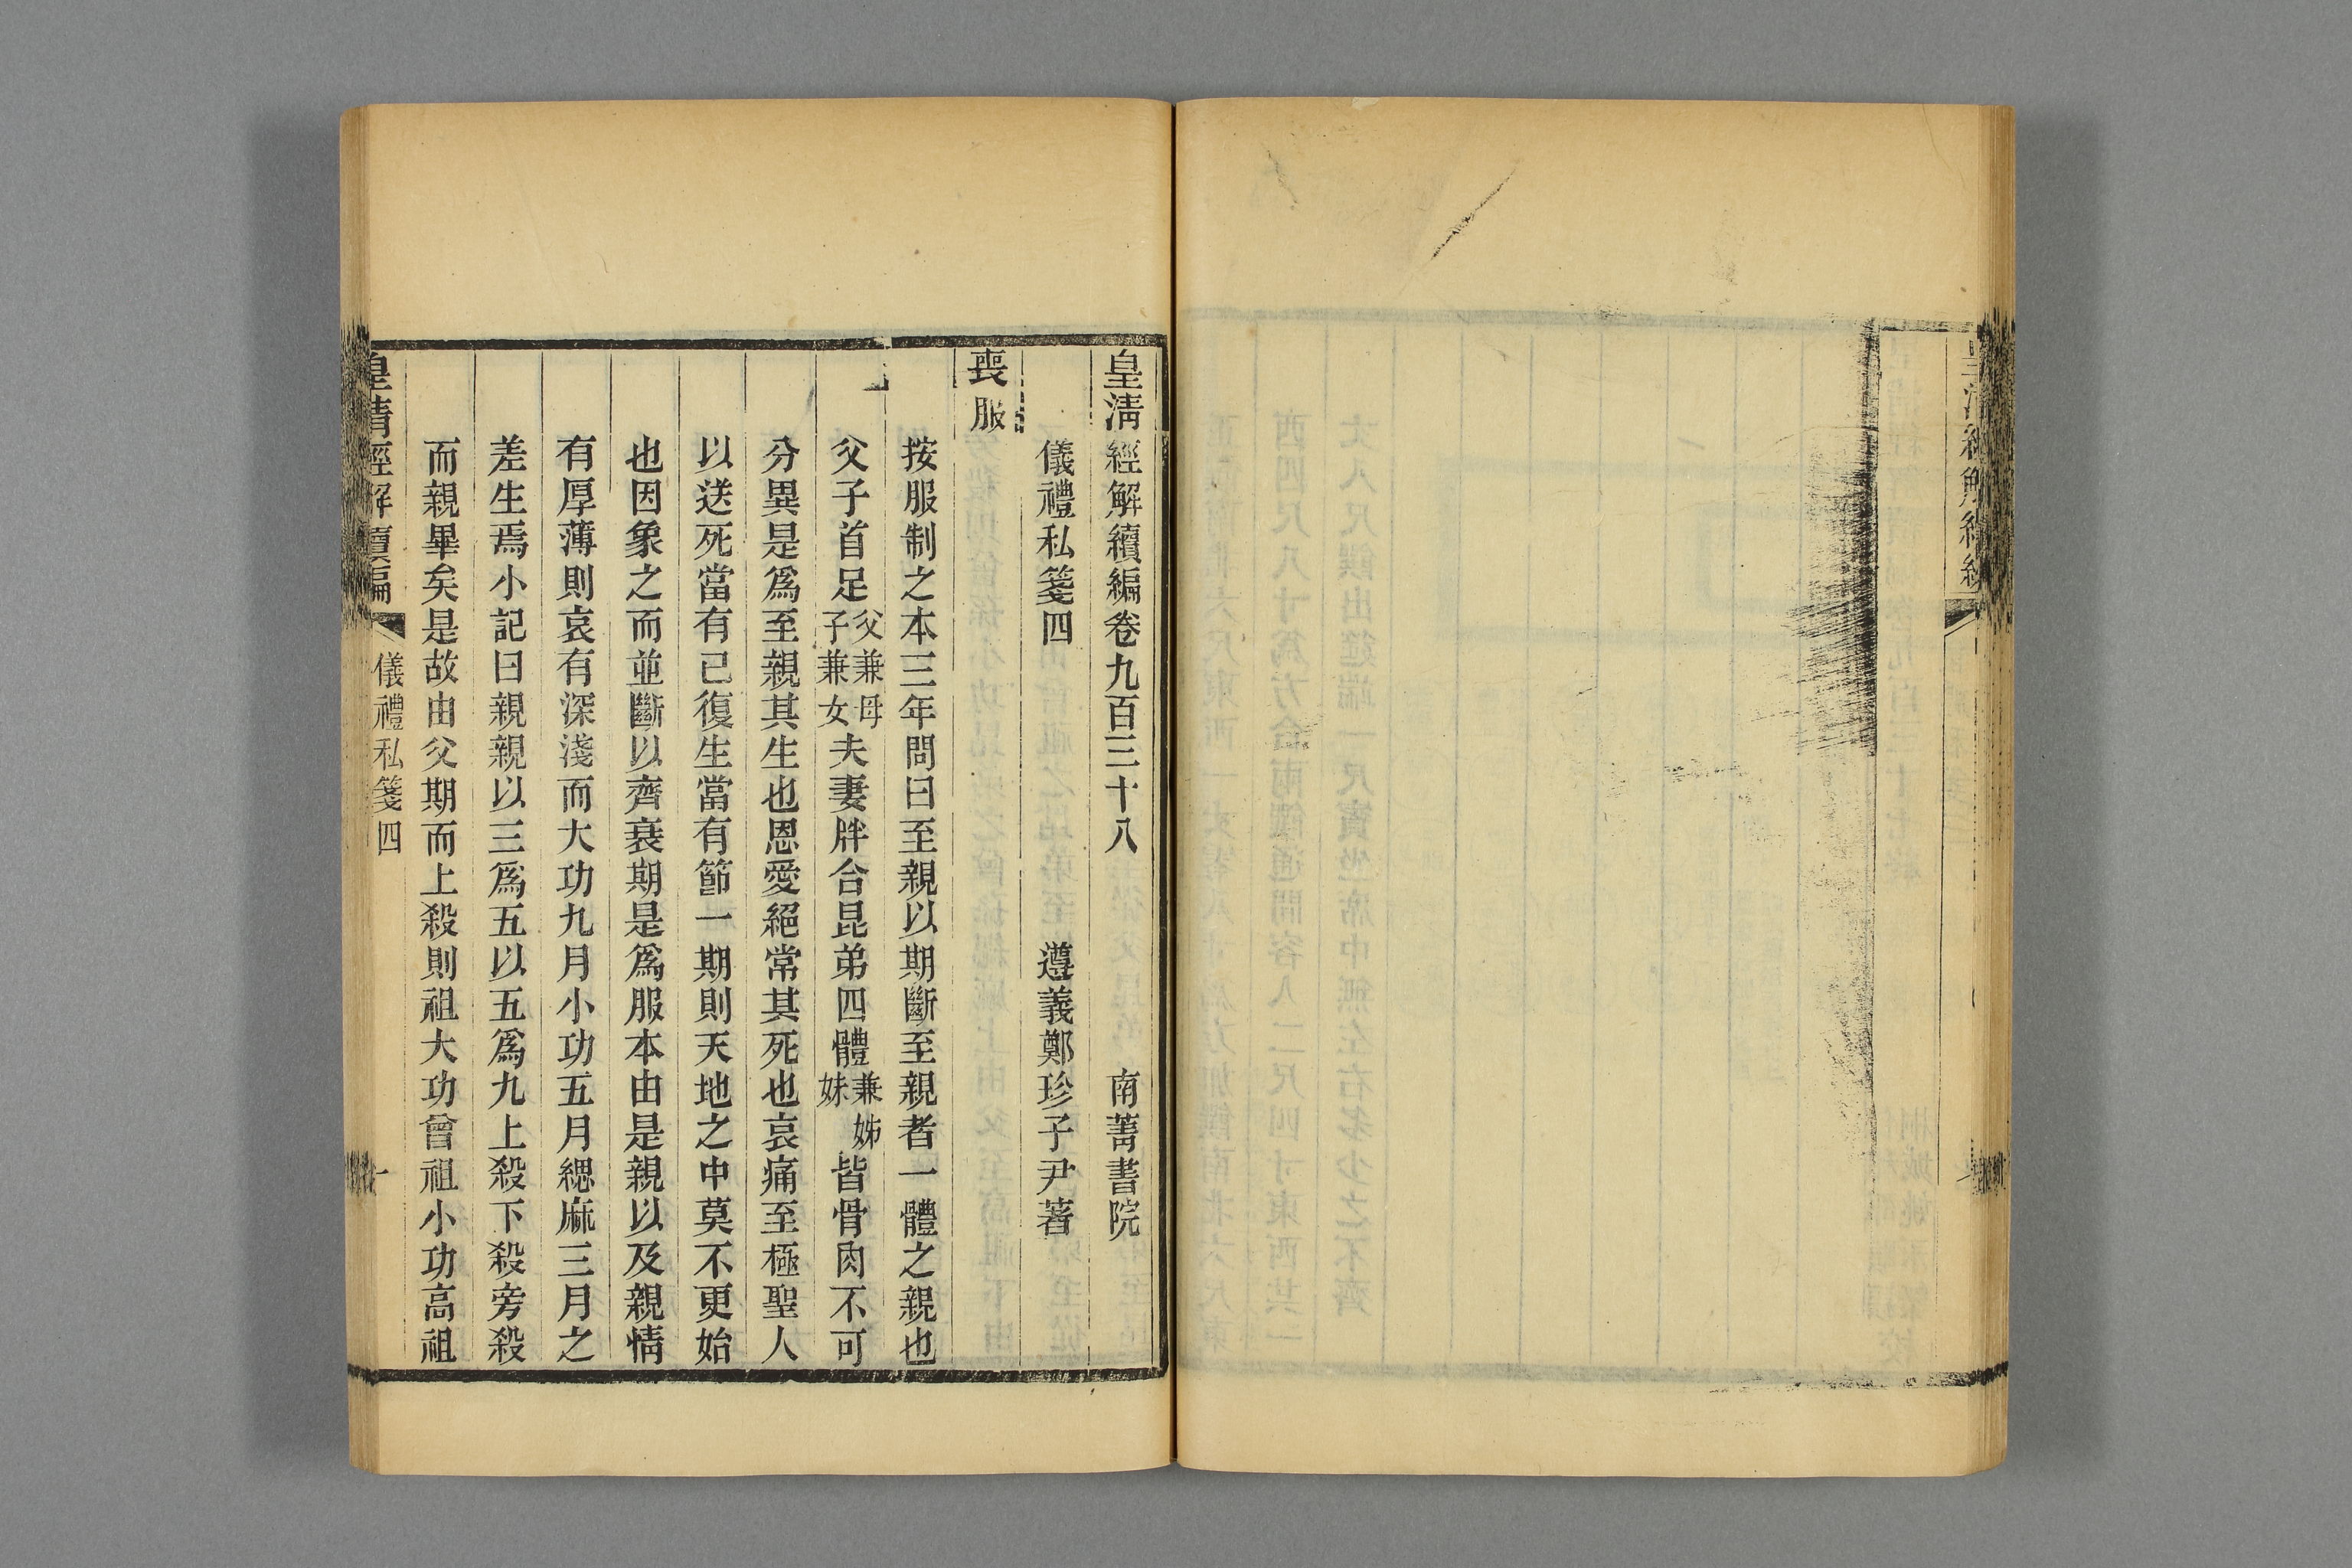 皇清經解續編卷九百三十八　南菁書院
儀禮私箋四　遵義鄭珍子尹著
喪服
按服制之本三年問曰至親以期斷至親者一體之親也
父子首足父兼母子兼女夫妻牉合昆弟四體兼姊妹皆骨肉不可
分異是爲至親其生也恩愛絕常其死也哀痛至極聖人
以送死當有已復生當有節一期則天地之中莫不更始
也因象之而並斷以齊衰期是爲服本由是親以及親情
有厚薄則哀有深淺而大功九月小功五月緦麻三月之
差生焉小記曰親親以三爲五以五爲九上殺下殺旁殺
而親畢矣是故由父期而上殺則祖大功曾祖小功高祖
皇清經解續編　儀禮私箋四　一
皇清經解續編